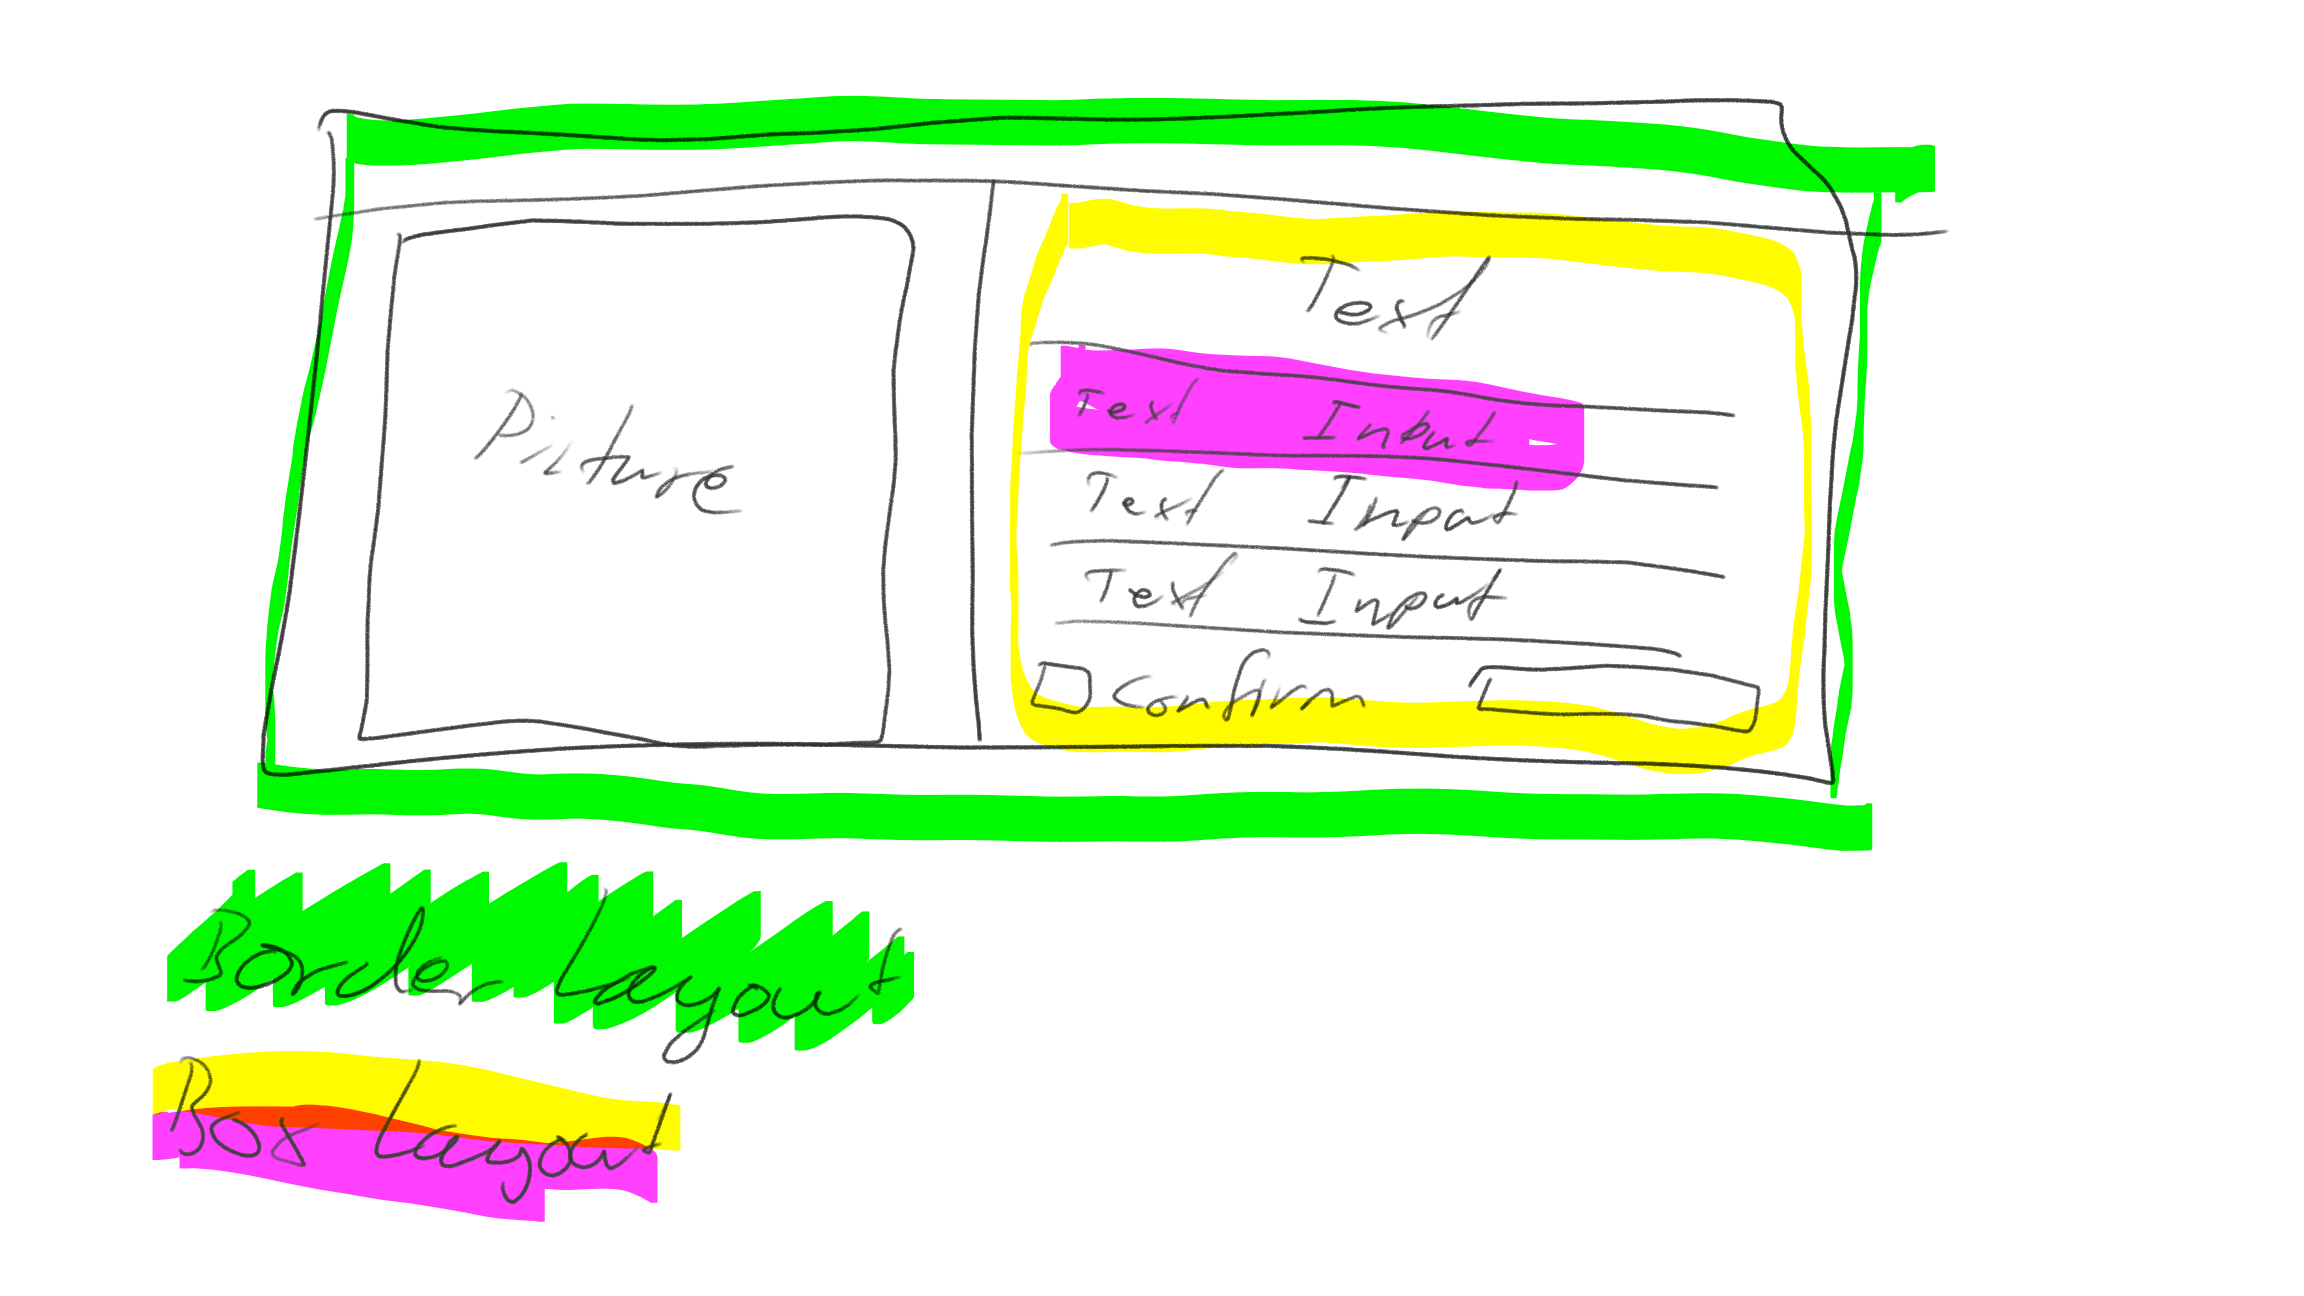 Text
Picture
Text Input
Text Input
Text Input
Confirm
Border Layout
Box Layout